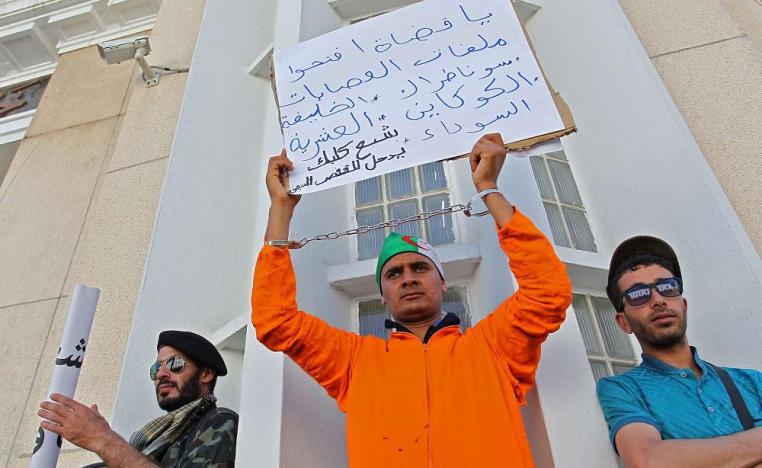 يا قضاة افتحوا
ملفات العصابات
سوناطراك. الخليفة
الكوكايين. العشرية
السوداء
شبع كلبك
يدخل للقفص